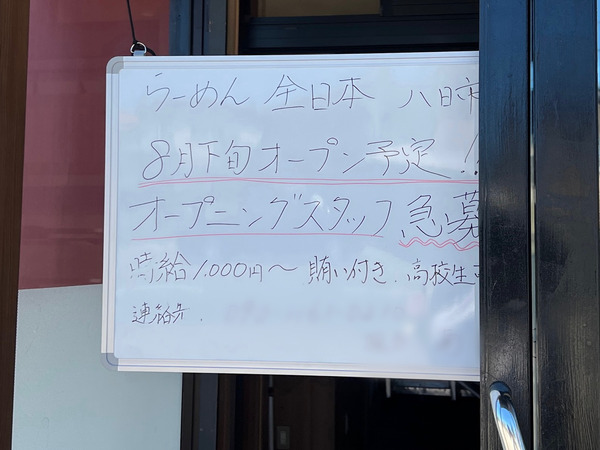 らーめん 全日本 八日市
8月下旬オープン予定!!
オープニングスタッフ急募
時給1,000円〜 賄い付き、高校生可
連絡先.